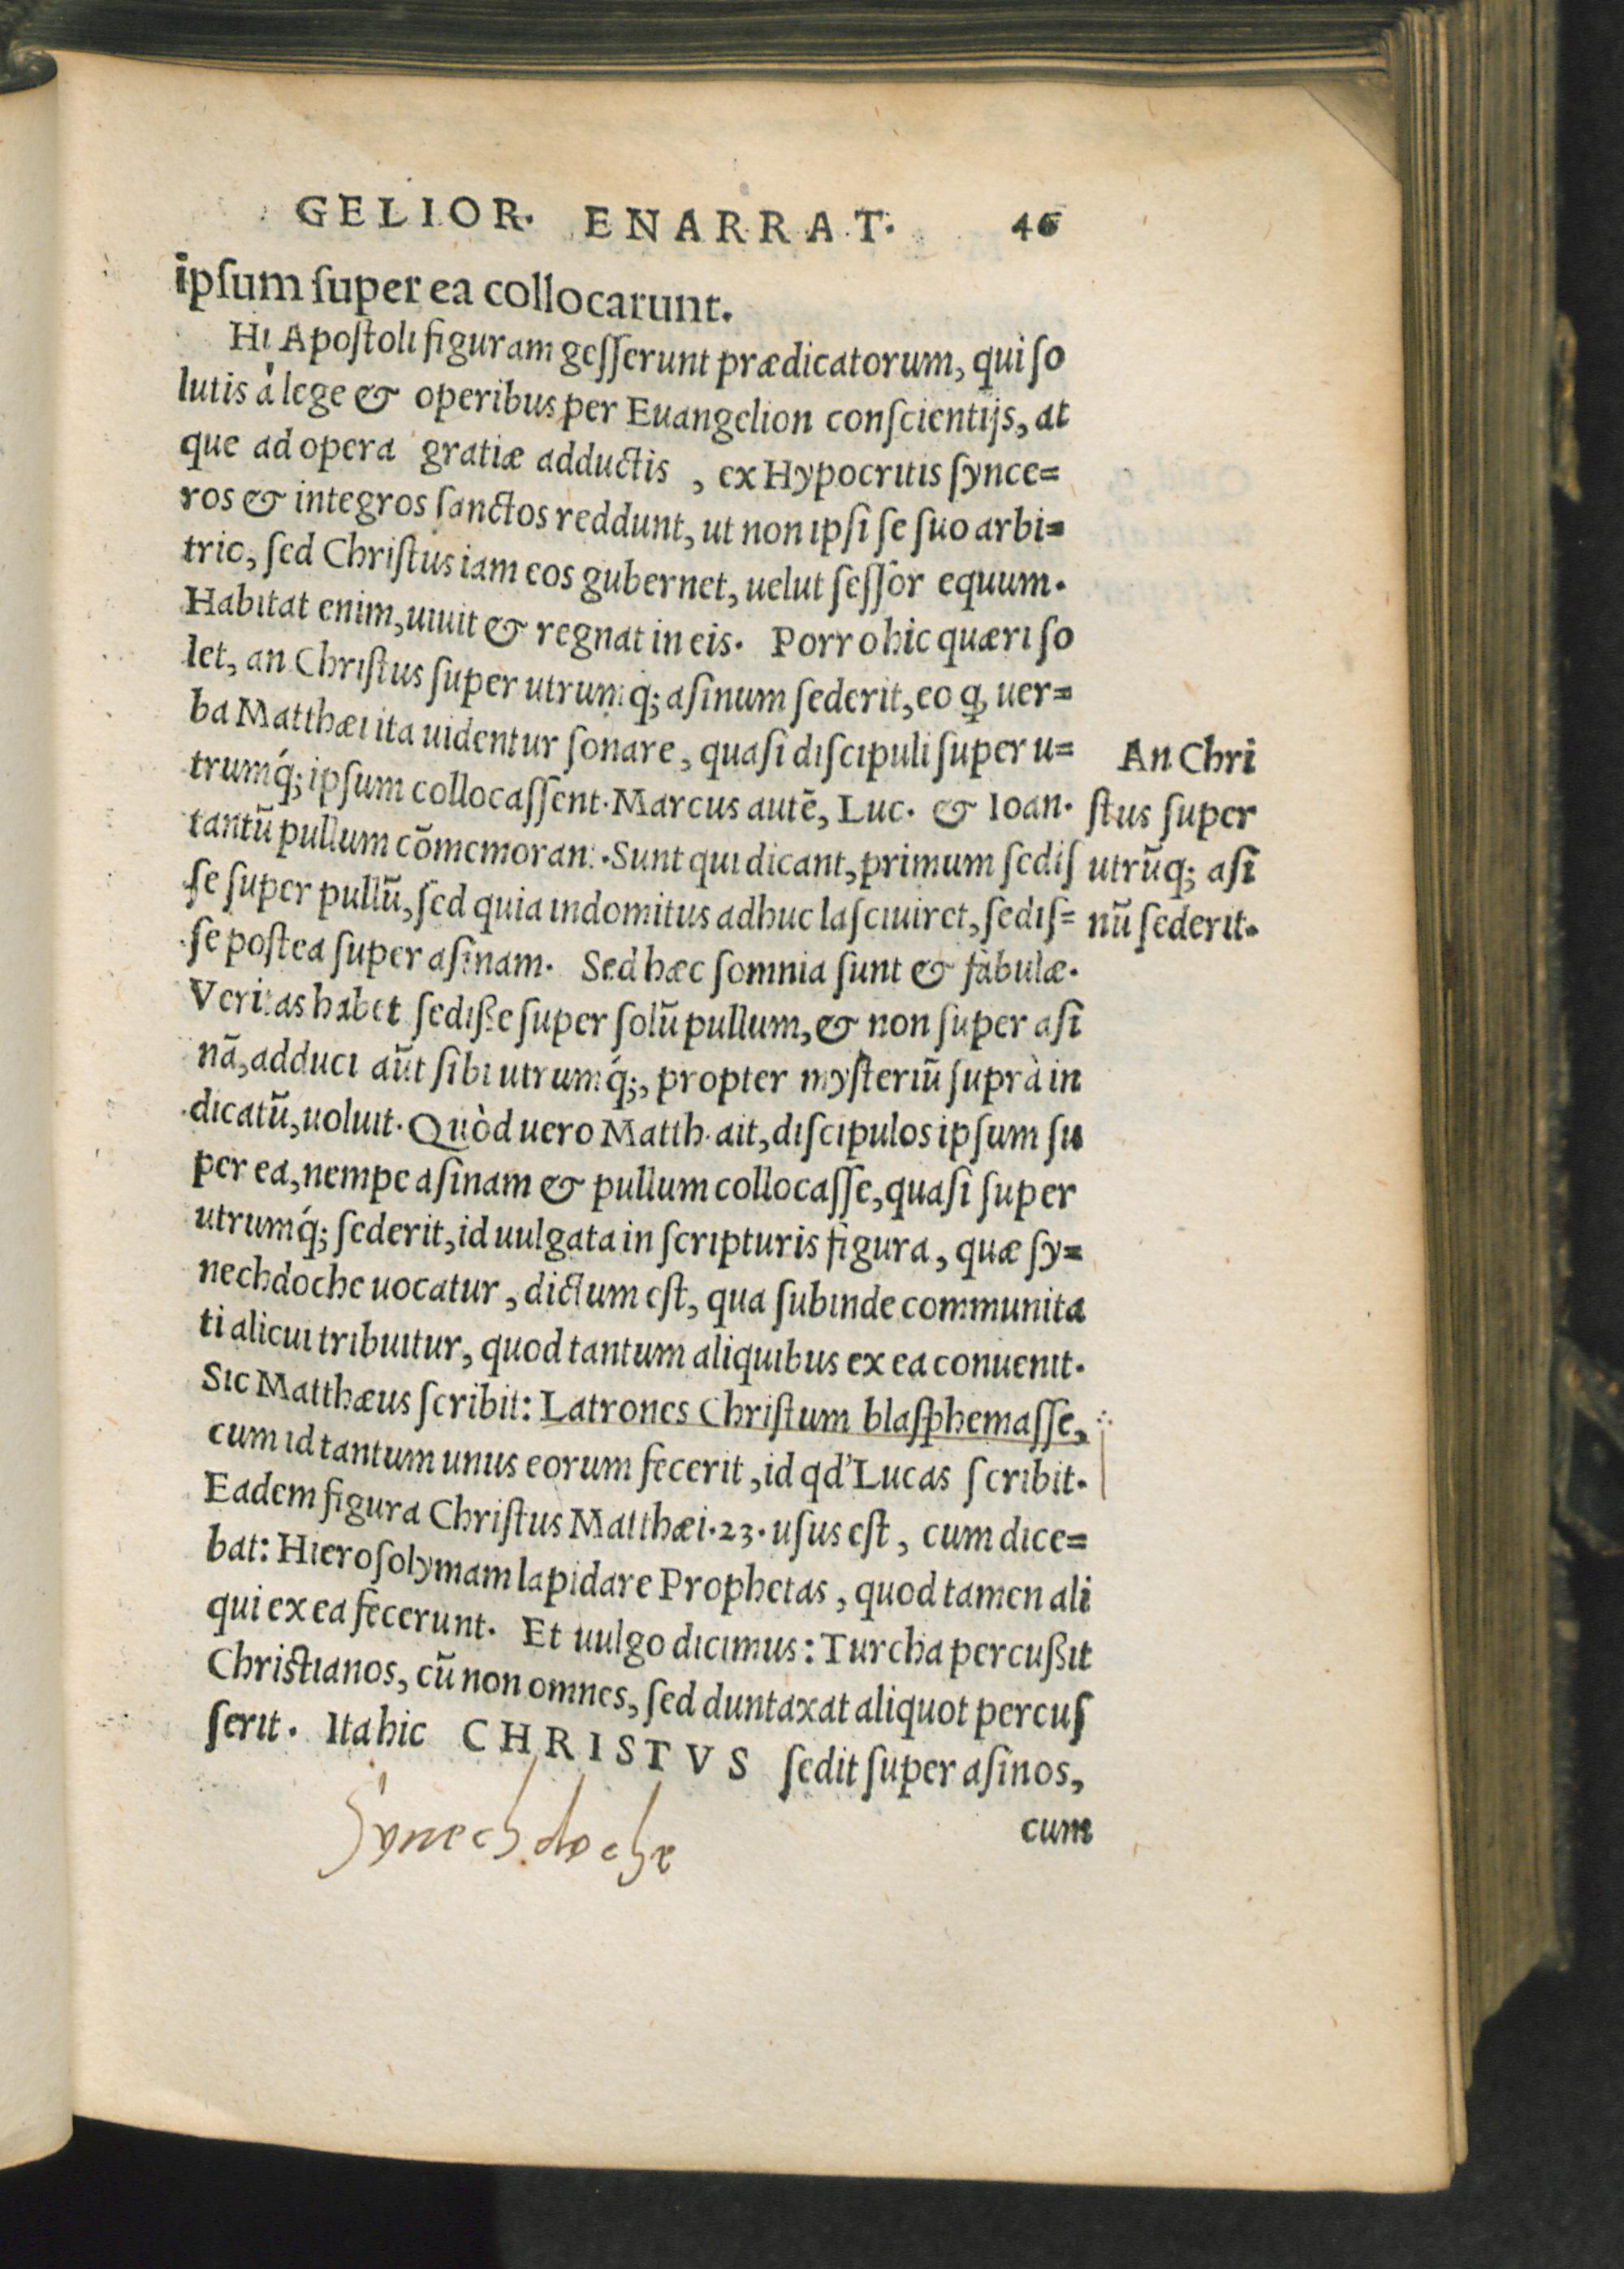 GELIOR. ENARRAT. 46
ipſum ſuper ea collocarunt.
Hi Apoſtoli figuram geſſerunt prædicatorum, qui ſo
lutis à lege & operibus per Euangelion conſcientijs, at
que ad opera gratiæ adductis, ex Hypocritis ſynce=
ros & integros ſanctos reddunt, ut non ipſi ſe ſuo arbi=
trio, ſed Chriſtus iam eos gubernet, uelut ſeſſor equum.
Habitat enim, uiuit & regnat in eis. Porro hic quæri ſo
let, an Chriſtus ſuper utrumq́; aſinum ſederit, eo ꝙ uer=
ba Matthæi ita uidentur ſonare, quaſi diſcipuli ſuper u=
trumq́; ipſum collocaſſent. Marcus autē, Luc. & Ioan.
tantū pullum cōmemorant. Sunt qui dicant, primum ſediſ
ſe ſuper pullū, ſed quia indomitus adhuc laſciuiret, ſediſ=
ſe poſtea ſuper aſinam. Sed hæc ſomnia ſunt & fabulæ.
Veritas habet ſediße ſuper ſolū pullum, & non ſuper aſi
nā, adduci aūt ſibi utrumq́;, propter myſteriū ſuprà in
dicatū, uoluit. Quòd uero Matth. ait, diſcipulos ipſum ſu
per ea, nempe aſinam & pullum collocaſſe, quaſi ſuper
utrumq́; ſederit, id uulgata in ſcripturis figura, quæ ſy=
nechdoche uocatur, dictum eſt, qua ſubinde communita
ti alicui tribuitur, quod tantum aliquibus ex ea conuenit.
Sic Matthæus ſcribit: Latrones Chriſtum blaſphemaſſe,
cum id tantum unus eorum fecerit, id qd' Lucas ſcribit.
Eadem figura Chriſtus Matthæi. 23. uſus eſt, cum dice=
bat: Hieroſolymam lapidare Prophetas, quod tamen ali
qui ex ea fecerunt. Et uulgo dicimus: Turcha percußit
Chriſtianos, cū non omnes, ſed duntaxat aliquot percuſ
ſerit. Ita hic CHRISTVS ſedit ſuper aſinos,
cum
An Chri
ſtus ſuper
utrūq; aſi
nū ſederit.
Synechdoche